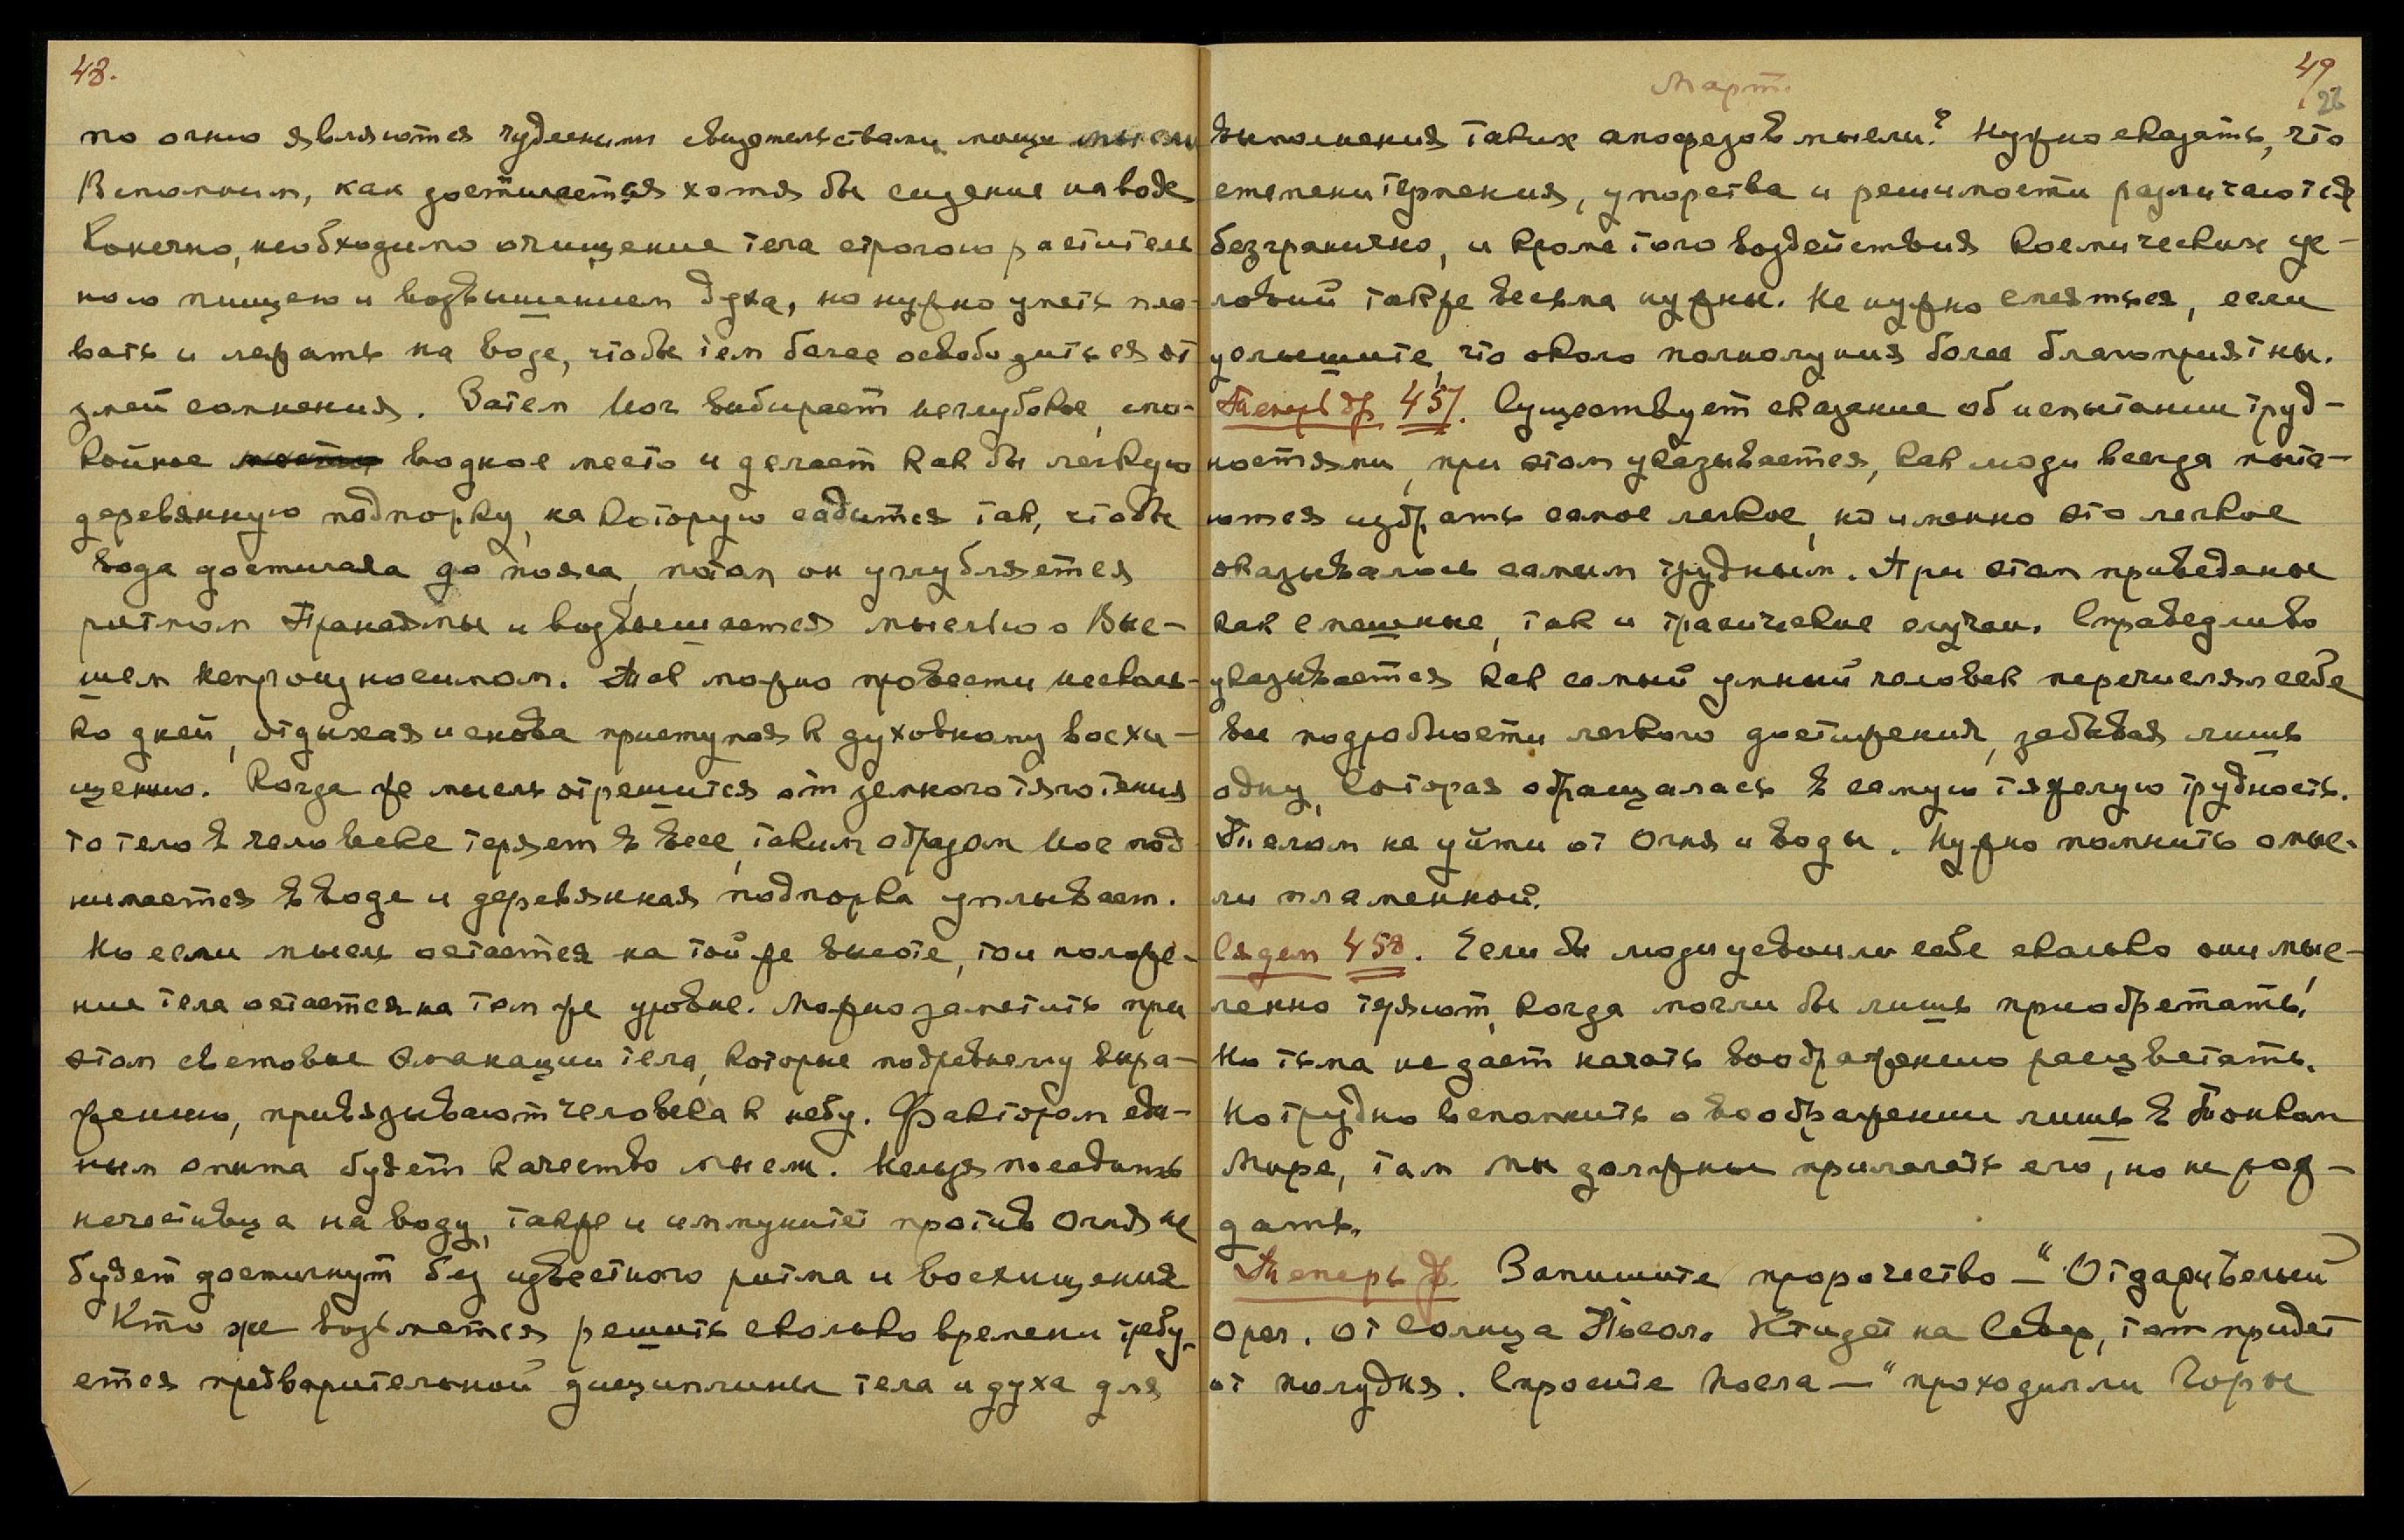 48.
по огню являются чудесными свидетельствами мощи мысли
Вспомним, как достигается хотя бы сидение на воде
Конечно, необходимо очищение тела строгою раститель
ною пищею и возвышением духа, но нужно уметь пла-
вать и лежать на воде, чтобы тем более освободиться от
змей сомнения. Затем Йог выбирает неглубокое, спо-
койное водное место и делает как бы легкую
деревянную подпорку, на которую садится так, чтобы
вода достигала до пояса, потом он углубляется
ритмом Пранаямы и возвышается мыслью о Выс-
шем Непроизносимом. Так можно провести несколь-
ко дней, отдыхая и снова приступая к духовному восхи-
щению. Когда же мысль отрешится от земного тяготения
то тело в человеке теряет в весе, таким образом Йог под
нимается в воде и деревянная подпорка уплывает.
Но если мысль остается на той же высоте, то и положе-
ние тела остается на том же уровне. Можно заметить при
этом световые эманации тела, которые по древнему выра-
жению, привязывают человека к небу. Фактором еди-
ным опыта будет качество мысли. Нельзя посадить
нечестивца на воду, также и иммунитет против Огня не
будет достигнут без известного ритма и восхищения
Кто же возьмется решить сколько времени требу-
ется предварительной дисциплины тела и духа для
Март.
49
26
выполнения таких апофезов мысли? Нужно сказать, что
степени терпения, упорства и решимости различаются
безгранично, и кроме того воздействия космических ус-
ловий также весьма нужны. Не нужно смеяться, если
услышите, что около полнолуния более благоприятны.
Теперь др. 457. Существует сказание об испытании труд-
ностями, при этом указывается, как люди всегда пыта-
ются избрать самое легкое, но именно это легкое
оказывалось самым трудным. При этом приведены
как смешные, так и трагические случаи. Справедливо
указывается как самый умный человек перечислял себе
все подробности легкого достижения, забывая лишь
одну, которая обращалась в самую тяжелую трудность.
Телом не уйти от Огня и воды. Нужно помнить о мыс-
ли пламенной.
Сядем 458. Если бы люди усвоили себе сколько они мыс-
ленно теряют, когда могли бы лишь приобретать!
Но тьма не дает начать воображению расцветать.
Но трудно вспомнить о воображении лишь в Тонком
Мире, там мы должны прилагать его, но не рож-
дать.
Теперь др. Запишите пророчество — "От зари белый
орел. От Солнца Посол. Кто идет на Север, тот придет
от полудня. Спросите Посла — "проходил ли Горы